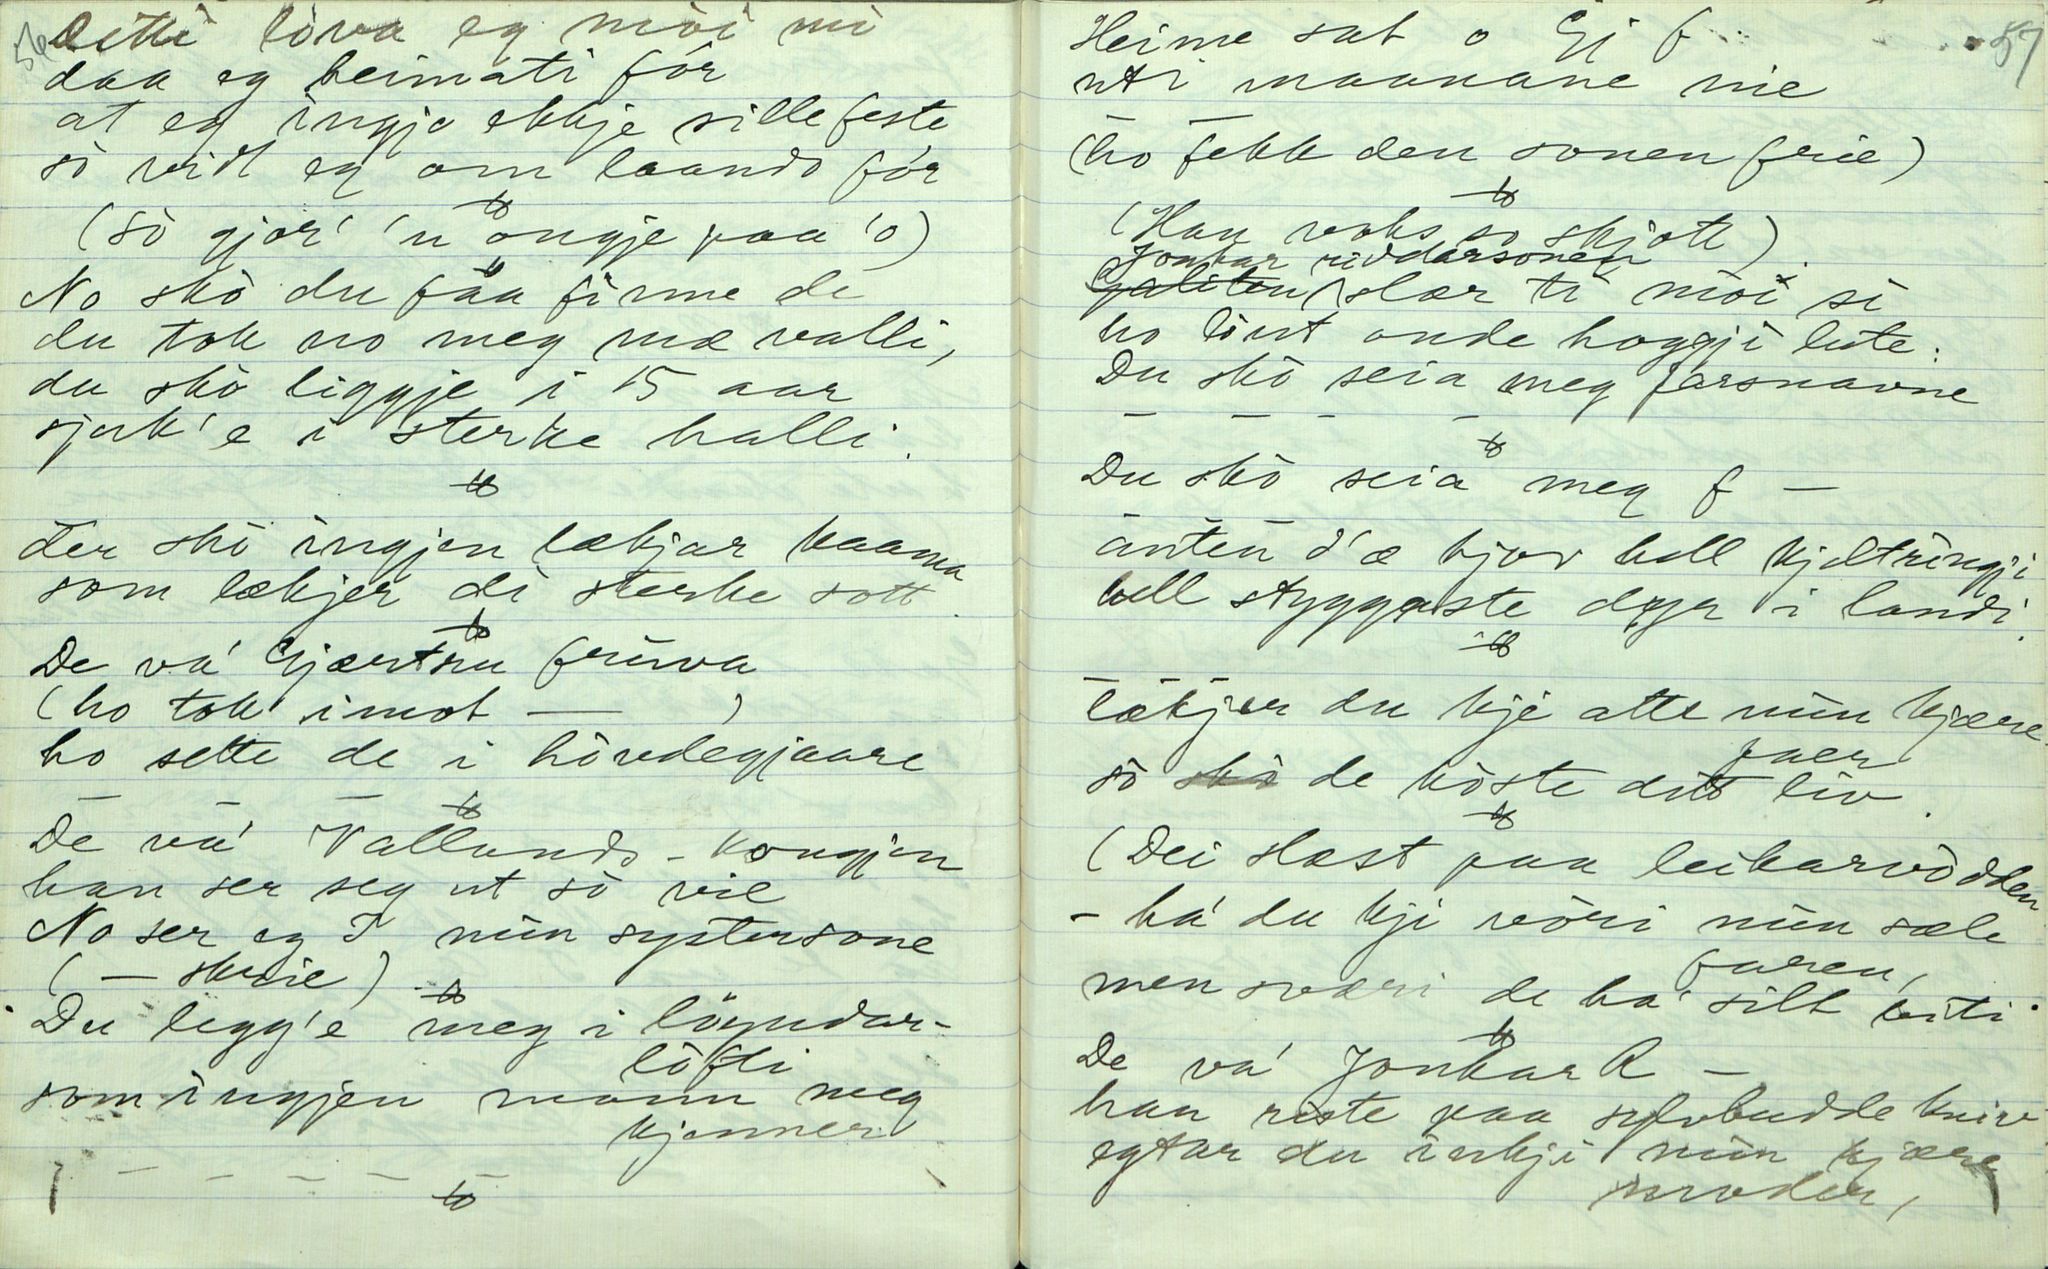 56
Detti lova eg mòi mi
daa eg heimati fór
at eg ingje ekkje sille feste
sò vidt eg om laando fór
(sò gjor' 'n ongje paa 'o)
No skò du faa finne de
du tok no meg mæ valli,
du skò liggje i 15 aar
sjuk 'e i sterke halli.
Der skò ingjen lækjar kaama
som lækjer di sterke sott.
De va' Gjærtru frúva
(ho tok imot — )
ho sette de i hövdegjaare
— — — —
De va' Vallands-kongjen
han ser seg ut sò vie
No ser eg I min systersone
( — skrie)
Du legg'e meg i löyndar-
löfti
som ingjen mann meg
kjenner
— — — — —
57
Heime sat o Gj f
uti maanane nie
(ho fekk den sonen frie)
(Han voks so skjott)
Jonkar riddarsonen
slær ti mòi si
ho lout onde hoggji lute:
Du skò seia meg farsnavne
— — — —
Du skò seia meg f —
anten d'æ kjov hell kjeltringji
hell styggaste dyr i landi.
lækjer du kje atte min kjære
faer
sò de köste ditt liv.
(Dei slæst paa leikarvòdden
- ha' du kji vòri min sæle
faren,
men sværi de ha' silt biti.
De va' Jonkar R —
han reste paa sylvbudde kniv
egtar du inkji min kjære
moder,